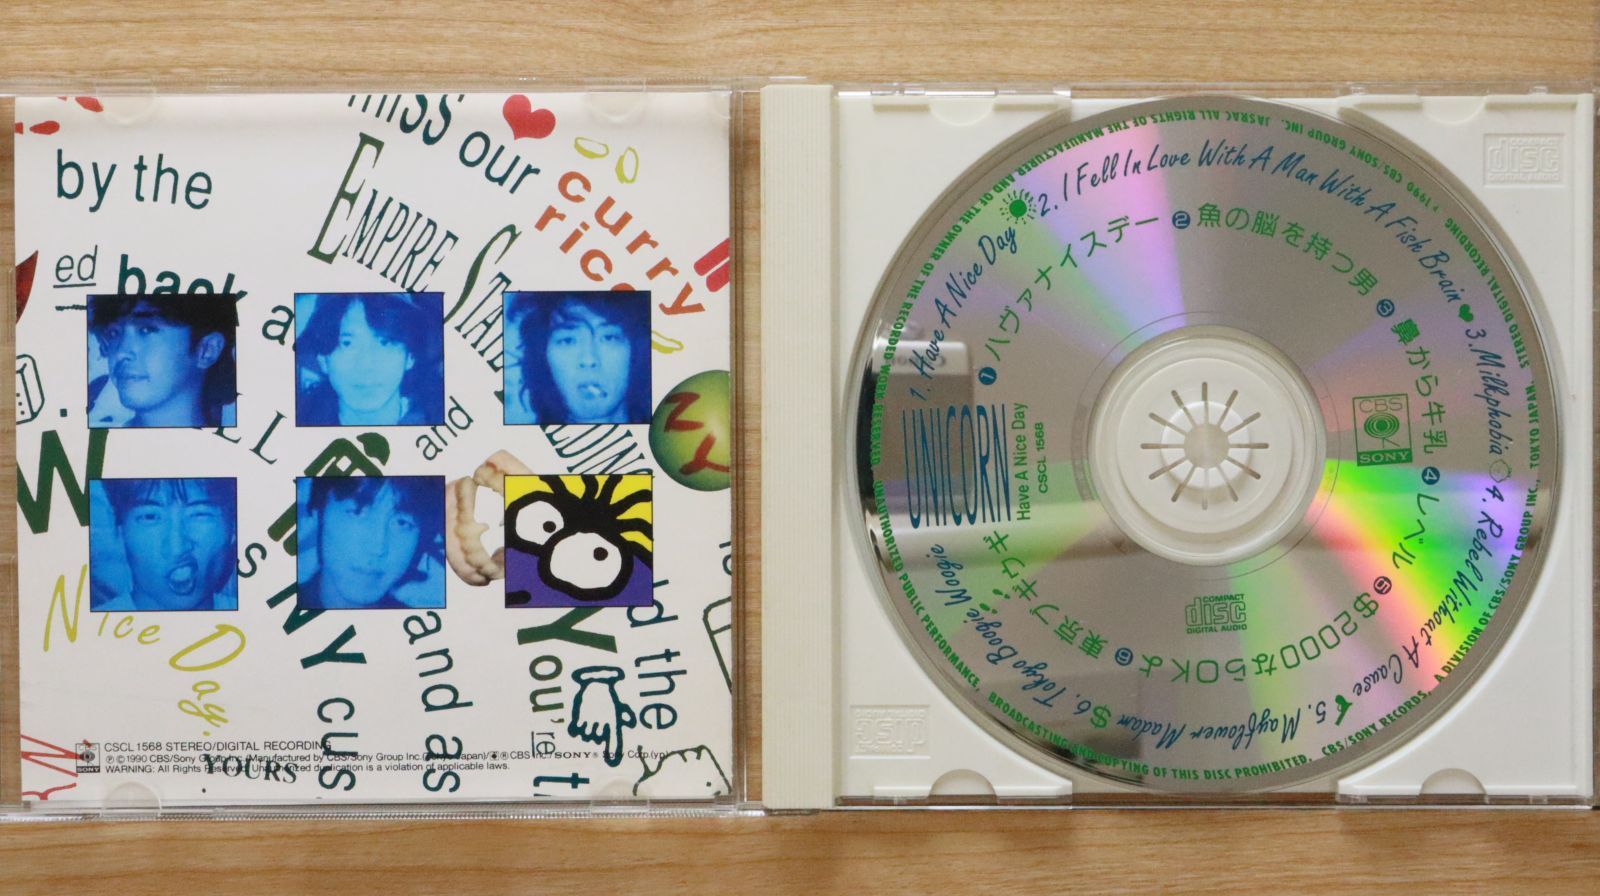 miss our
curry
rice
by the
EMPIRE STATE
ed
back
and
NY
W
s
NY
Nice Day.
and as
You're
and the
cus
YOURS
CBS
SONY
CSCL 1568 STEREO/DIGITAL RECORDING
Ⓟ©1990 CBS/Sony Group Inc.
WARNING: All Rights Reserved. Unauthorized duplication is a violation of applicable laws.
UNICORN
Have A Nice Day
CSCL 1568
1. Have A Nice Day
2. I Fell In Love With A Man With A Fish Brain
3. Milkphobia
4. Rebel Without A Cause
5. Mayflower Madam
6. Tokyo Boogie Woogie
❶ハヴァナイスデー
❷魚の脳を持つ男
❸鼻から牛乳
❹レベル
❺$2000ならOKよ
❻東京ブギウギ
CBS
SONY
COMPACT
disc
DIGITAL AUDIO
UNAUTHORIZED PUBLIC PERFORMANCE, BROADCASTING AND COPYING OF THIS DISC PROHIBITED.
CBS/SONY RECORDS, A DIVISION OF CBS/SONY GROUP INC., TOKYO JAPAN.
STEREO DIGITAL RECORDING
℗ 1990 CBS/SONY GROUP INC. JASRAC ALL RIGHTS OF THE MANUFACTURER AND OF THE OWNER OF THE RECORDED WORK RESERVED
COMPACT
disc
DIGITAL AUDIO
COMPACT
disc
DIGITAL AUDIO